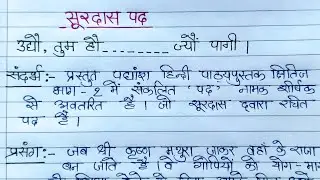 सूरदास पद
उद्यौ, तुम हौ________ज्यौं पागी।
संदर्भ :- प्रस्तुत पद्यांश हिन्दी पाठ्यपुस्तक क्षितिज
भाग - २ में संकलित 'पद' नामक शीर्षक
से अवतरित है। जो सूरदास द्वारा रचित
पद है।
प्रसंग:- जब श्री कृष्ण मथुरा जाकर वहाँ के राजा
बन जाते हैं वे गोपियों को योग-